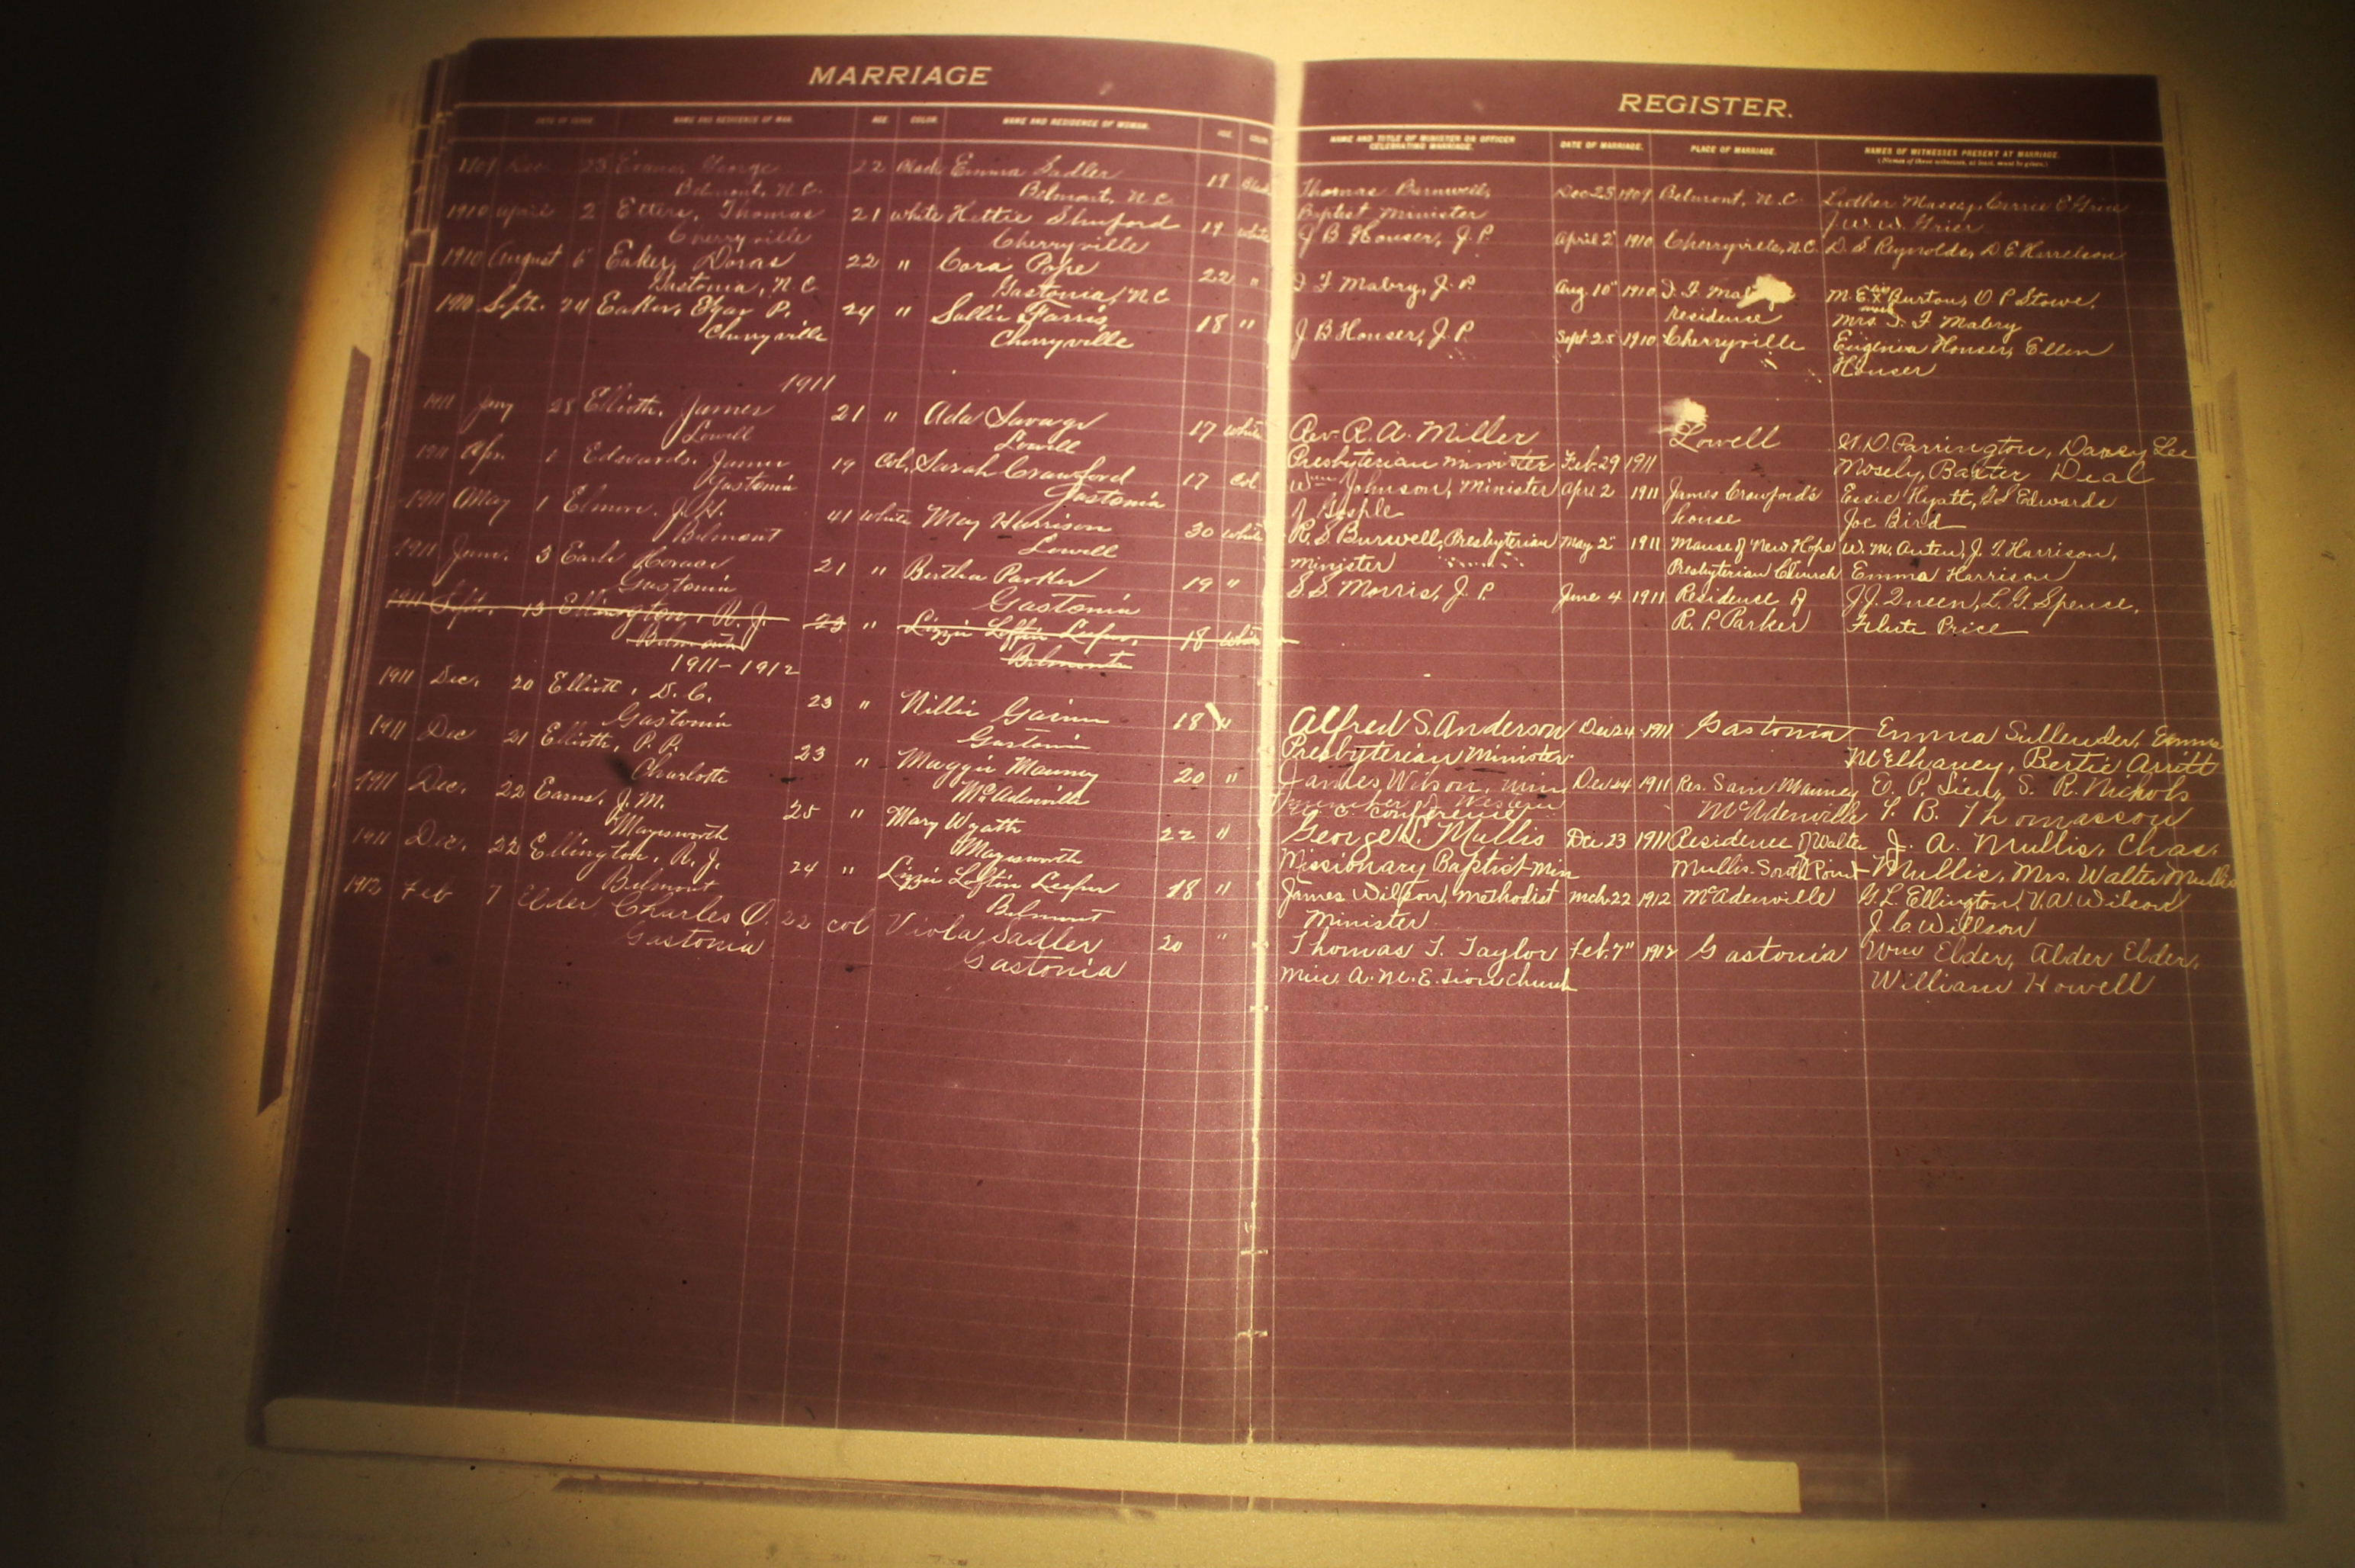 MARRIAGE
DATE OF ISSUE. NAME AND RESIDENCE OF MAN. AGE. COLOR. NAME AND RESIDENCE OF WOMAN. AGE. COLOR.
1909 Dec 23 Evans, George 22 Black Emma Sadler 19 Black
Belmont, N.C. Belmont, N.C.
1910 April 2 Etters, Thomas 21 white Hettie Shuford 19 white
Cherryville Cherryville
1910 August 6 Eaker, Doras 22 " Cora Pope 22 "
Gastonia, N.C Gastonia, N.C
1910 Sept. 24 Eaker, Egar P. 24 " Sallie Farris, 18 "
Cherryville Cherryville
1911
1911 Jany 28 Elliott, James 21 " Ada Savage 17 white
Lowell Lowell
1911 Apr. 1 Edwards, James 19 Col. Sarah Crawford 17 Col
Gastonia Gastonia
1911 May 1 Elmore, J. H. 41 white May Harrison 30 white
Belmont Lowell
1911 June. 3 Earle Horace 21 " Bertha Parker 19 "
Gastonia Gastonia
1911 Sept. 13 Ellington, R. J. 23 " Lizzie Loftin Leeper, 18 white
Belmont Belmont
1911-1912
1911 Dec. 20 Elliott, D. C. 23 " Nillie 18 "
Gastonia Gastonia
1911 Dec 21 Elliott, P. P. 23 " Maggie Mauney 20 "
Charlotte McAdenville
1911 Dec. 22 Earns, J. M. 25 " Mary Wyatt 22 "
Mayesworth Mayesworth
1911 Dec. 22 Ellington, R. J. 24 " Lizzie Loftin Leeper 18 "
Belmont Belmont
1912 Feb 7 Elder Charles O. 22 col Viola Sadler 20 "
Gastonia Gastonia
REGISTER.
NAME AND TITLE OF MINISTER OR OFFICER CELEBRATING MARRIAGE. DATE OF MARRIAGE. PLACE OF MARRIAGE. NAMES OF WITNESSES PRESENT AT MARRIAGE.
(Names of three witnesses, at least, must be given.)
Thomas Burnwell, Dec 23 1909 Belmont, N.C. Luther Massey, Carrie E Grier
Baptist Minister J W. W. Grier
J B Houser, J. P. April 2 1910 Cherryville, N.C. D. S Reynolds, D. E. Harrelson
I F Mabry, J. P Aug. 10" 1910 I. F. M. E. Burton, O. P Stowe,
residence Mrs I. F Mabry
J B Houser, J. P. Sept 25 1910 Cherryville Eugenia Houser, Ellen
Houser
Rev. R. A. Miller Lowell Parrington, Lee
Presbyterian minister Feb. 29 1911 Mosely, Baxter Deal
Wm Johnson, Minister Apr 2 1911 James Crawford's Essie Hyatt, Edwards
house Joe Bird
R. S Burwell, Presbyterian May 2" 1911 Manse of New Hope W. M. Auten, J. I. Harrison,
minister Presbyterian Church Emma Harrison
S. S. Morris, J. P. June 4 1911 Residence of J. J. Queen, L. G. Spence,
R. P. Parker Flute Price
Alfred S. Anderson Dec 24 1911 Gastonia Emma Sullender, Emma
Presbyterian Minister McElhaney, Bertie Arritt
James Wilson, min Dec 24 1911 Res. Sam Mauney E. P. S. R. Nichols
member of Western McAdenville Y. B. Thomasson
N. C. Conference
George L. Mullis Dec 23 1911 Residence of Walter J. A. Mullis, Chas.
Missionary Baptist Min Mullis. South Point Mullis, Mrs. Walter Mullis
James Willson, Methodist Mch 22 1912 McAdenville G. L. Ellington, V. A. Wilson
Minister J. C. Willson
Thomas T. Taylor Feb. 7" 1912 Gastonia Wm Elder, Alder Elder,
Min. A. M. E. Zion Church William Howell